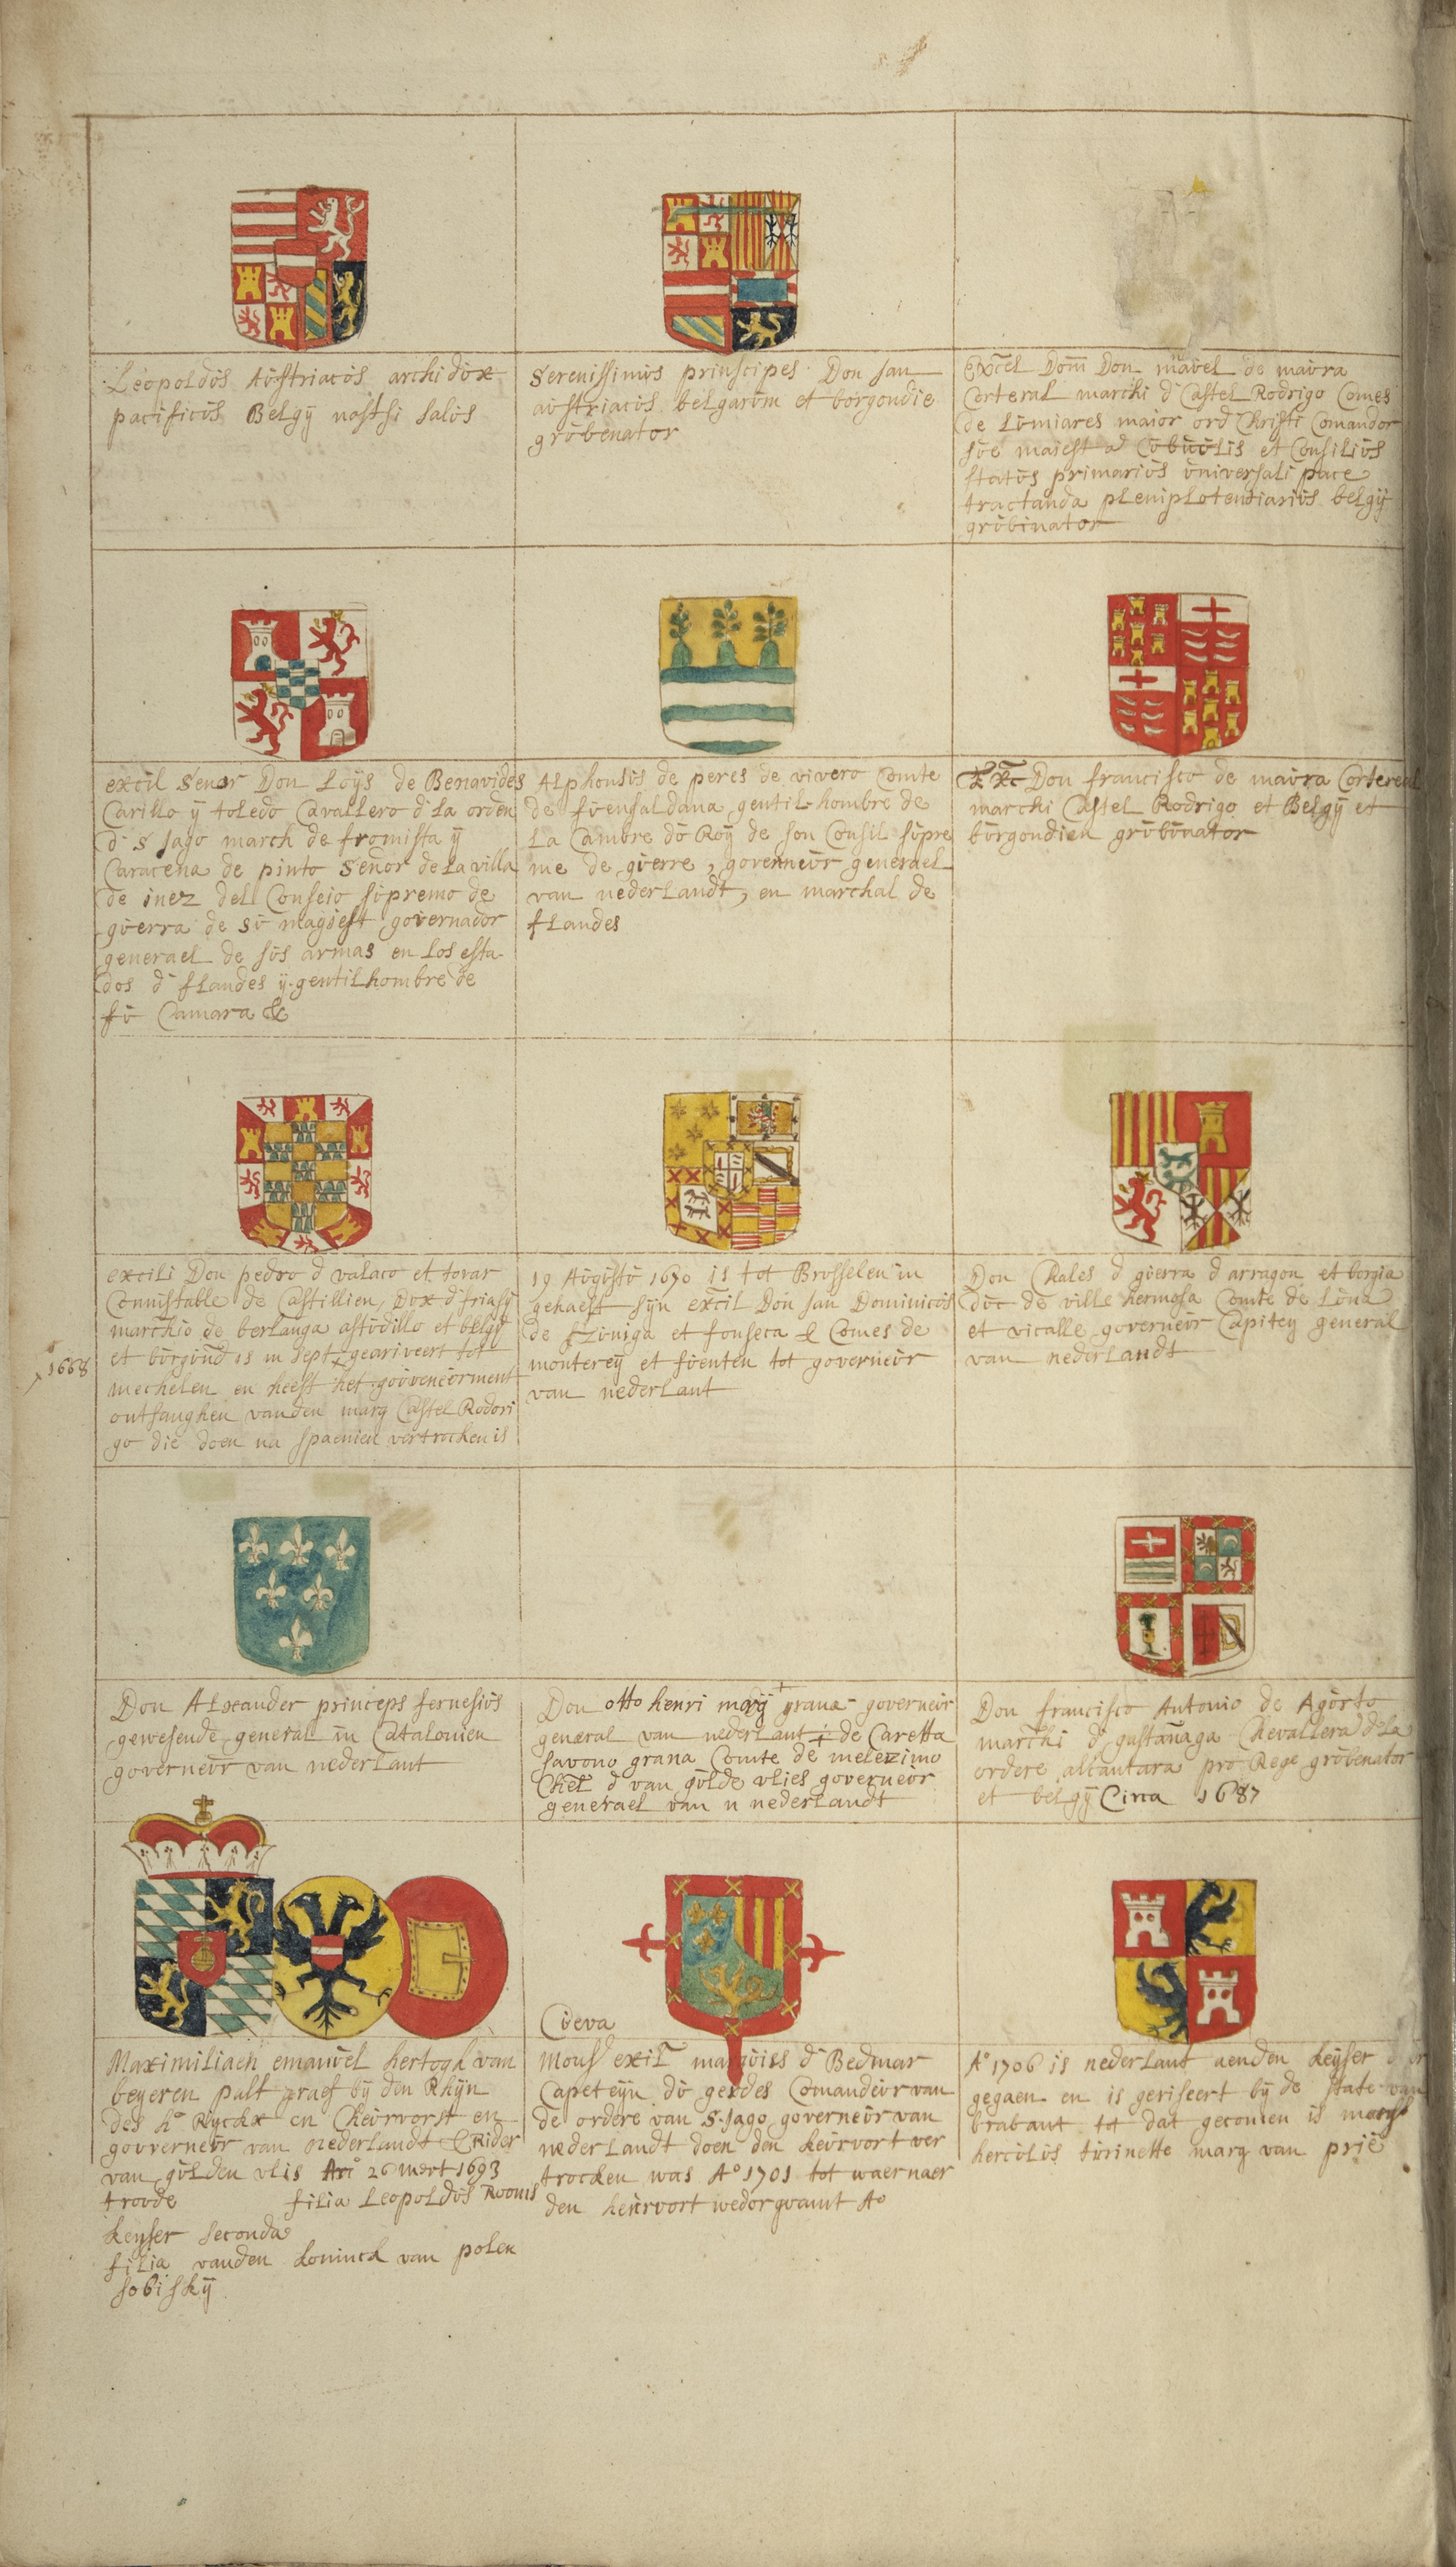 Leopoldus Austriacus archidux
pacificus Belgÿ nostri salus
Serenissimus prinscipes Don Jan
austriacus belgarum et borgondie
grubenator
Excel Dom Don mauel de maura
Corteral marchi d Castel Rodrigo Comes
de Lumiares maior ord Christi Comandor
sue maiest a Cubuulis et Consilius
status primarius universali pace
tractanda pleniplotentiarius belgÿ
grubinator
excil Senor Don Loÿs de Benavides
Carillo ÿ toledo Cavallero d la orden
d S Jago march de fromista ÿ
Caracena de pinto Señor de la villa
de inez del Conseio supremo de
guerra de su magiest governador
generael de sus armas en los esta-
dos d flandes ÿ gentilhombre de
su Camara &
Alphonsus de peres de vivero Comte
de fuensaldana gentil hombre de
La Cambre du Roÿ de son Consil supre
me de guerre, governeur generael
van nederlandt, en marchal de
flandes
Exc Don francisco de maura Cortereal
marchi Castel Rodrigo et Belgÿ et
burgondien grubinator
excili Don pedro d valaco et tovar
Connistable de Castillien, Dux d friasÿ
marchio de berlanga astudillo et belgÿ
et burgund is in Sept geariveert tot
1668
mechelen en heeft het gouveneurment
ontfanghen vanden marq Castel Rodori
go die doen na Spaenien vertrocken is
19 Augustu 1670 is tot Brusselen in
gehaest sÿn excil Don Jan Dominicus
de Zuniga et fonseca & Comes de
monterey et fuenten tot governeur
van nederlant
Don Chales d guerra d arragon et borgia
duc de ville hermosa Comte de Luna
et vicalle governeur Capiteÿ general
van nederlandt
Don Alxander princeps fernesius
gewesende general in Catalonien
governeur van nederlant
Don otto henri marÿ grana governeur
general van nederlant de Caretta
Savono grana Comte de melezimo
Chel d van gulde vlies governeur
generael van n nederlandt
Don francisco Antonio de Agurto
marchi d gastanaga Chevallera d la
ordere alcantara pro Rege grubenator
et belgÿ Circa 1687
Maximiliaen emanuel hertogh van
beyeren palt graef bÿ den Rhÿn
des h° Rÿckx en Cheurvorst en
gouverneur van nederlandt & Rider
van gulden vlis 26 mert 1693
troude filia Leopoldus Rooms
keyser seconda
filia vanden koninck van polen
sobiskÿ
Cueva
Mons exil marquiss d Bedmar
Capeteÿn du gerdes Comandeur van
de ordere van S. Jago governeur van
nederlandt doen den keurvort ver
trocken was A° 1701 tot waernaer
den keurvort wedorquamt A°
A° 1706 is nederlant aenden keÿser
gegaen en is geriseert bÿ de state van
brabant tot dat gecomen is marqs
herculus turinette marq van prié